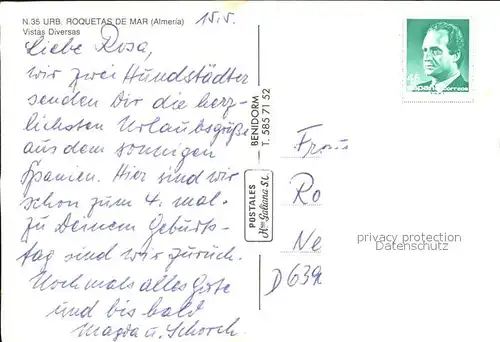 N.35 URB. ROQUETAS DE MAR (Almería)
Vistas Diversas
15.5.
Liebe Rosa,
wir zwei Hundstädter
senden Dir die herz-
lichsten Urlaubsgrüße
aus dem sonnigen
Spanien. Hier sind wir
schon zum 4. mal.
zu Deinem Geburts-
tag sind wir zurück.
Nochmals alles Gute
und bis bald
Magda u. Schorch.
BENIDORM
T. 585 71 52
POSTALES
Hnos Galiana S.L.
46
España correos
Frau
Ro
Ne
D639
privacy protection
Datenschutz